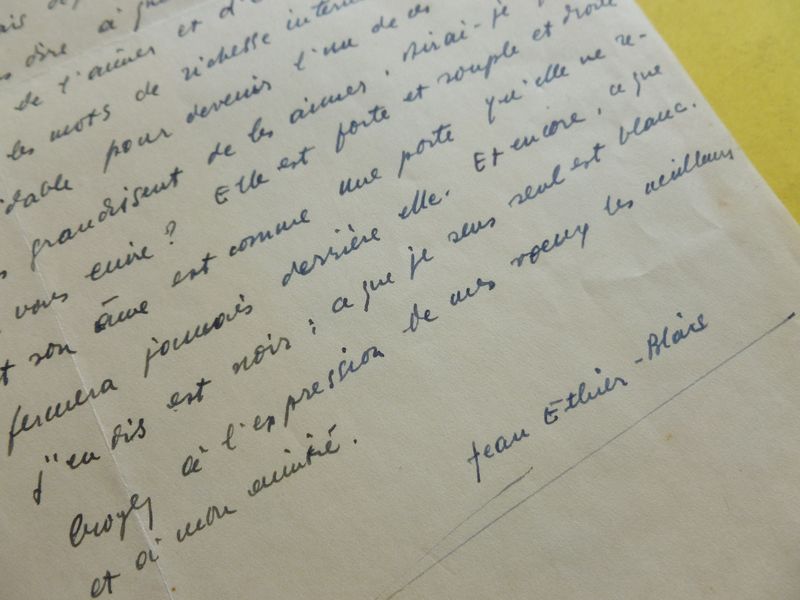 dire à
de l'aimer et d'e
les mots de richesse intern
idable pour devenir l'un de ces
s grandissent de les aimer. Dirai-je
vous ? Elle est forte et souple et droite
et son âme est comme une porte qu'elle ne re-
fermera jamais derrière elle. Et encore, ce que
j'en dis est noir ; ce que je sens seul est blanc.
Croyez à l'expression de mes vœux les meilleurs
et à mon amitié.
Jean Ethier-Blais